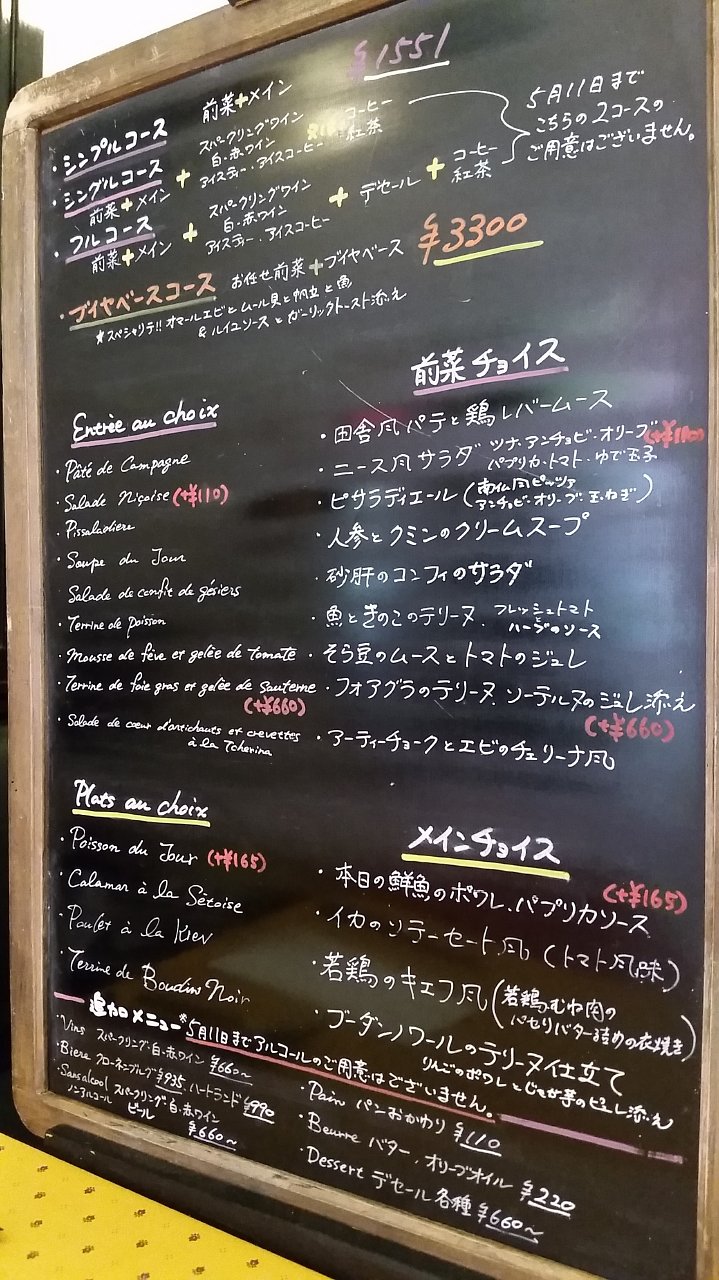 ・シンプルコース 前菜+メイン ¥1551
・シングルコース
前菜+メイン + スパークリングワイン
白・赤ワイン
アイスティー・アイスコーヒー
コーヒー
紅茶
5月11日まで
こちらの2コースの
ご用意はございません。
・フルコース
前菜+メイン + スパークリングワイン
白・赤ワイン
アイスティー・アイスコーヒー
+ デセール + コーヒー
紅茶
・ブイヤベースコース お任せ前菜+ブイヤベース ¥3300
★スペシャリテ!! オマールエビとムール貝と帆立と魚
& ルイユソースとガーリックトースト添え
Entrée au choix
・Pâté de Campagne
・Salade Niçoise (+¥110)
・Pissaladière
・Soupe du Jour
・Salade de confit de gésiers
・Terrine de poisson
・Mousse de fève et gelée de tomate
・Terrine de foie gras et gelée de Sauterne
(+¥660)
・Salade de cœur d'antichauts et crevettes
à la Tcherina
前菜チョイス
・田舎風パテと鶏レバームース
・ニース風サラダ ツナ・アンチョビ・オリーブ (+¥110)
パプリカ・トマト・ゆで玉子
・ピサラディエール (南仏風ピッツァ
アンチョビ・オリーブ・玉ねぎ)
・人参とクミンのクリームスープ
・砂肝のコンフィのサラダ
・魚ときのこのテリーヌ、フレッシュトマト
と
ハーブのソース
・そら豆のムースとトマトのジュレ
・フォアグラのテリーヌ、ソーテルヌのジュレ添え
(+¥660)
・アーティーチョークとエビのチェリーナ風
Plats au choix
・Poisson du Jour (+¥165)
・Calamar à la Sètoise
・Poulet à la Kiev
・Terrine de Boudin Noir
メインチョイス
・本日の鮮魚のポワレ、パプリカソース (+¥165)
・イカのソテーセート風 (トマト風味)
・若鶏のキエフ風 (若鶏むね肉の
パセリバター詰めの衣焼き)
・ブーダンノワールのテリーヌ仕立て
りんごのポワレとじゃが芋のピュレ添え
追加メニュー *5月11日までアルコールのご用意はございません。
・Vins スパークリング・白・赤ワイン ¥660〜
・Bière クローネンブルグ¥935、ハートランド¥990
・Sans alcool スパークリング・白・赤ワイン
ノンアルコール ビール ¥660〜
・Pain パンおかわり ¥110
・Beurre バター、オリーブオイル ¥220
・Dessert デセール各種 ¥660〜